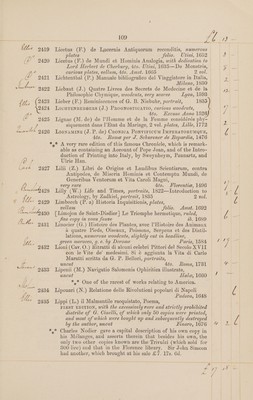 109
2419 Licetus (F.) de Lucernis Antiquorum reconditis, numerous
plates folio. Utini, 1652
2420 Licetus (F.) de Mundi et Hominis Analogia, with dedication to
Lord Herbert de Cherbury, 4to. Utini, 1635—De Monstris,
curious plates, vellum, 4to. Amst. 1665 2 vol.
2421 Lichtenthal (P.) Manuale bibliografico del Viaggiatore in Italia,
Milano, 1830
2422 Liebaut (J.) Quatre Livres des Secrets de Medecine et de la
Philosophie Chymique, woodcuts, very scarce Lyon, 1593
2423 Lieber (F.) Reminiscences of G. B. Niebuhr, portrait, 1835
2424 Liechtenberger (J.) Prognosticatio, curious woodcuts,
4to. Excusa Anno 1526
2425 Lignac (M. de) de l'Homme et de la Femme considérés phy-
siquement dans l'Etat du Mariage, 2 vol. plates. Lille, 1772
2426 Lignamine (J. P. de) Cronica Pontificum Imperatorumque,
4to. Romæ per J. Schurener de Bopardia, 1476
*** A very rare edition of this famous Chronicle, which is remark-
able as containing an Account of Pope Joan, and of the Intro-
duction of Printing into Italy, by Sweynheym, Pannartz, and
Ulric Han.
2427 Lilii (Z.) Libri de Origine et Laudibus Scientiarum, contra
Antipodes, de Miseria Hominis et Contemptu Mundi, de
Generibus Ventorum et Vita Caroli Magni,
very rare 4to. Florentiæ, 1496
2428 Lilly (W.) Life and Times, portraits, 1822—Introduction to
Astrology, by Zadkiel, portrait, 1835 2 vol.
2429 Limbroch (P. a) Historia Inquisitionis, plates,
vellum folio. Amst. 1692
2430 [Limojon de Saint-Disdier] Le Triomphe hermetique, ruled,
fine copy in even foam ib. 1689
2431 Linocier (G.) Histoire des Plantes, avec l'Histoire des Animaux
à quatre Pieds, Oiseaux, Poissons, Serpens et des Distil-
lations, numerous woodcuts, slightly cut in headline,
green morocco, g. e. by Derome Paris, 1584
2432 Lioni (Cav. O.) Ritratti di alcuni celebri Pittori del Secolo XVII
con le Vite de' medesimi. Si è aggiunta la Vita di Carlo
Maratti scritta da G. P. Bellori, portraits,
uncut 4to. Roma, 1731
2433 Lipenii (M.) Navigatio Salomonis Ophiritica illustrata,
uncut Halæ, 1660
*** One of the rarest of works relating to America.
2434 Liponari (N.) Relatione delle Rivolutioni popolari di Napoli
Padova, 1648
2435 Lippi (L.) il Malmantile racquistato, Poema,
FIRST EDITION, with the excessively rare and strictly prohibited
distratto of G. Cinelli, of which only 50 copies were printed,
and most of which were bought up and subsequently destroyed
by the author, uncut Finaro, 1676
*** Charles Nodier gave a capital description of his own copy in
his Mélanges, and asserts therein that besides his own, the
only two other copies known are the Trivulzi (which sold for
500 lire) and that in the Florence library. Sir John Simeon
had another, which brought at his sale £7. 17s. 6d.